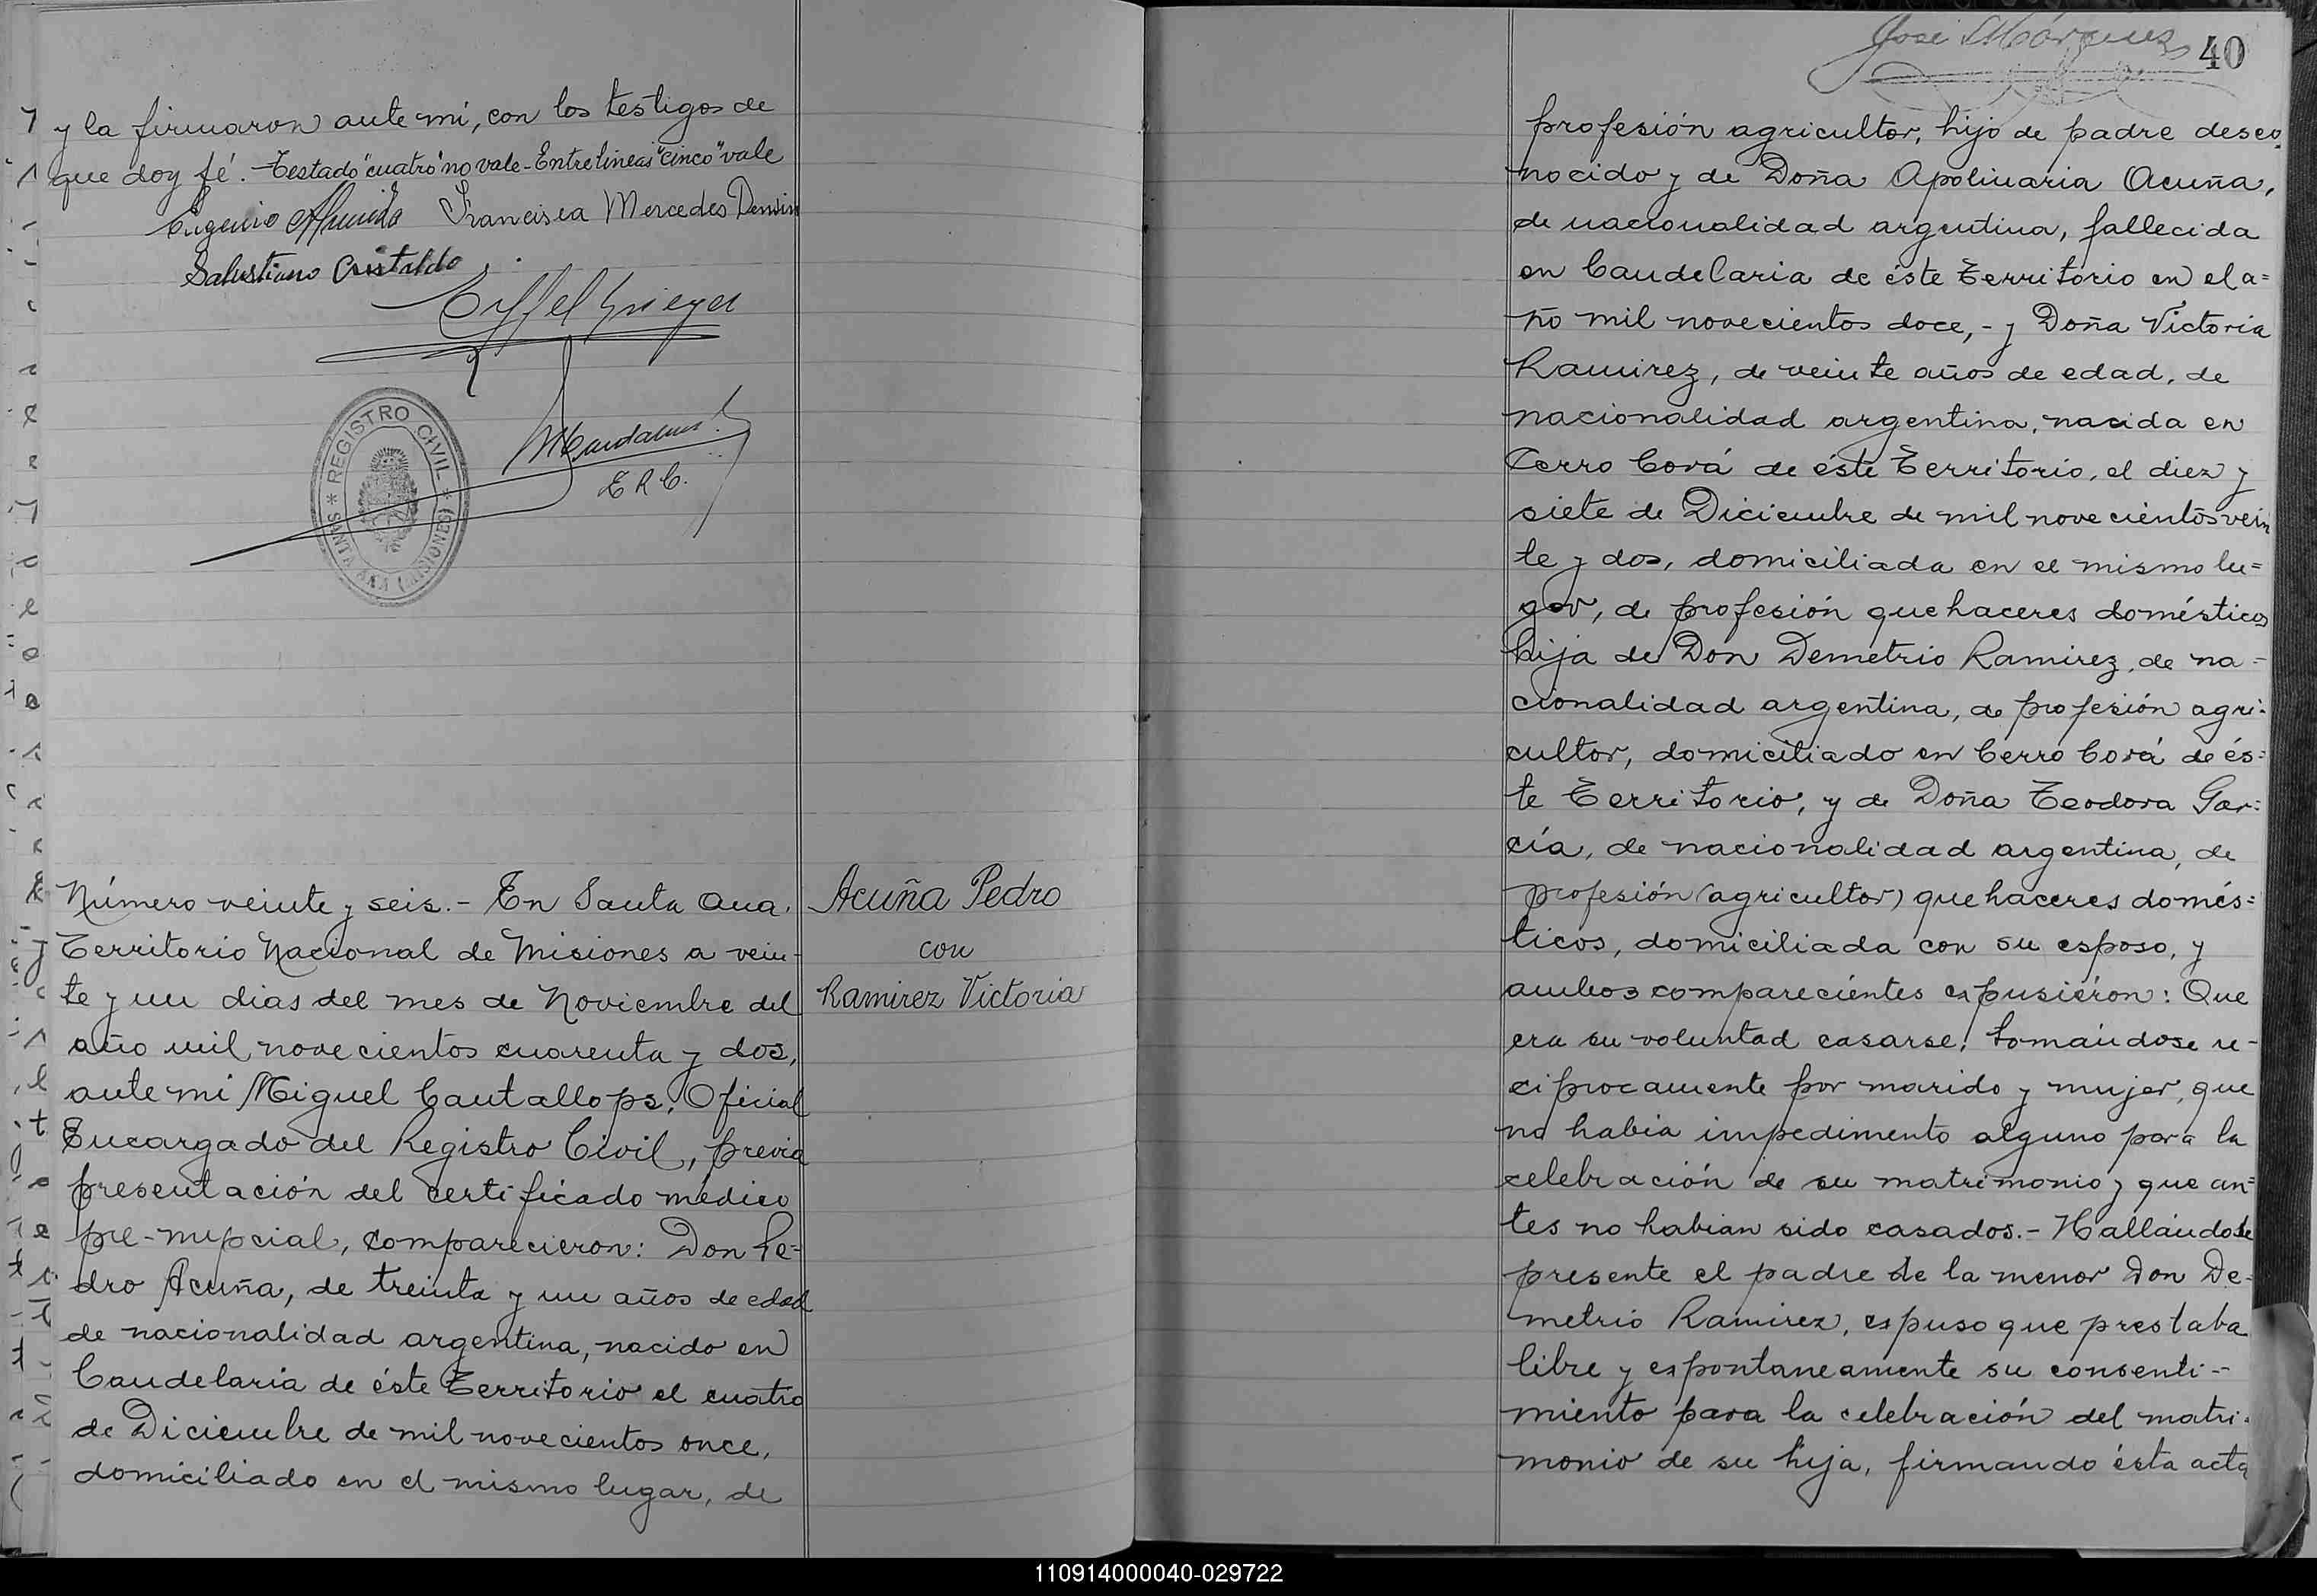 y la firmaron ante mi, con los testigos de
que doy fé.- Testado "cuatro" no vale - Entrelineas "cinco" vale
Eugenio Almirón Francisca Mercedes
Salustiano Cristaldo
E R C.
REGISTRO CIVIL
SANTA ANA (MISIONES)
Acuña Pedro
con
Ramirez Victoria
Número veinte y seis.- En Santa Ana,
Territorio Nacional de Misiones a vein-
te y un dias del mes de Noviembre del
año mil novecientos cuarenta y dos,
ante mi Miguel Cantallops, Oficial
Encargado del Registro Civil, previa
presentación del certificado médico
pre-nupcial, comparecieron: Don Pe=
dro Acuña, de treinta y un años de edad
de nacionalidad argentina, nacido en
Candelaria de éste Territorio el cuatro
de Diciembre de mil novecientos once,
domiciliado en el mismo lugar, de
José Márquez
40
profesión agricultor, hijo de padre desco
nocido y de Doña Apolinaria Acuña,
de nacionalidad argentina, fallecida
en Candelaria de éste Territorio en el a=
ño mil novecientos doce,- y Doña Victoria
Ramirez, de veinte años de edad, de
nacionalidad argentina, nacida en
Cerro Corá de éste Territorio, el diez y
siete de Diciembre de mil novecientos vein
te y dos, domiciliada en el mismo lu=
gar, de profesión quehaceres domésticos
hija de Don Demetrio Ramirez, de na-
cionalidad argentina, de profesión agri-
cultor, domiciliado en Cerro Corá de és=
te Territorio, y de Doña Teodora Gar=
cía, de nacionalidad argentina, de
profesión (agricultor) quehaceres domés=
ticos, domiciliada con su esposo, y
ambos comparecientes expusieron: Que
era su voluntad casarse, tomándose re-
ciprocamente por marido y mujer, que
no habia impedimento alguno para la
celebración de su matrimonio y que an=
tes no habian sido casados.- Hallándose
presente el padre de la menor Don De-
metrio Ramirez, expuso que prestaba
libre y espontaneamente su consenti-
miento para la celebración del matri-
monio de su hija, firmando ésta acta
110914000040-029722